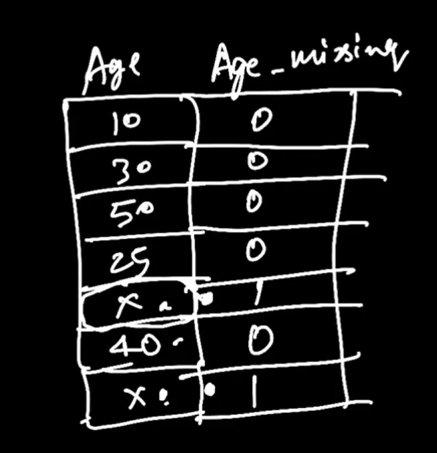 Age Age_missing
10 0
30 0
50 0
25 0
x 1
40 0
x 1